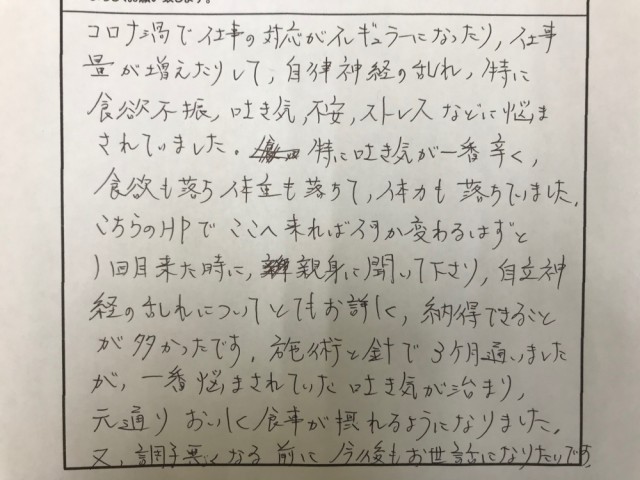 コロナ渦で仕事の対応がイレギュラーになったり，仕事
量が増えたりして，自律神経の乱れ，特に
食欲不振，吐き気，不安，ストレスなどに悩ま
されていました．特に吐き気が一番辛く，
食欲も落ち体重も落ちて，体力も落ちていました．
こちらのHPでここへ来れば何か変わるはずと
1回目来た時に，親身に聞いて下さり，自立神
経の乱れについてとてもお詳しく，納得できること
が多かったです．施術と針で3ヶ月通いました
が，一番悩まされていた吐き気が治まり，
元通りおいしく食事が摂れるようになりました．
又，調子悪くなる前に今後もお世話になりたいです